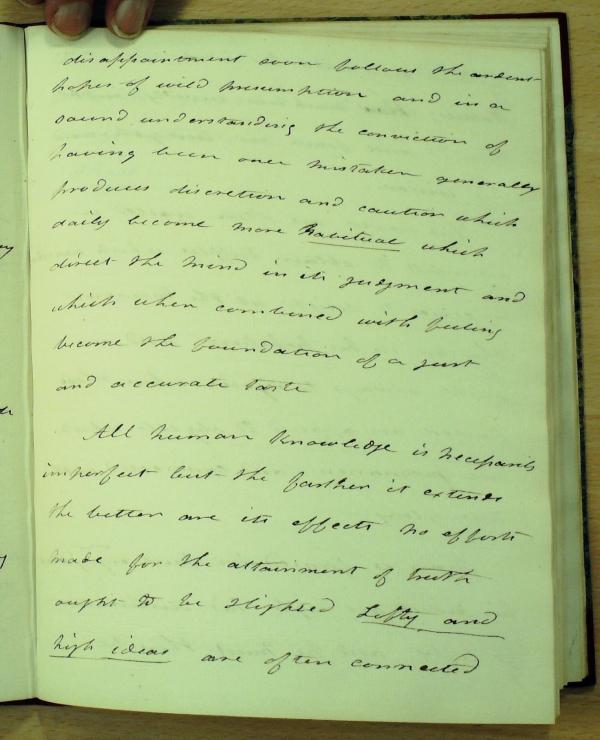 disappointment soon follows the ardent
hopes of wild presumption and in a
sound understanding the conviction of
having been once mistaken generally
produces discretion and caution which
daily become more habitual which
direct the mind in its judgment and
which when combined with feeling
become the foundation of a just
and accurate taste
All human Knowledge is necessarily
imperfect but the farther it extends
the better are its effects no efforts
made for the attainment of truth
ought to be slighted Lofty and
high ideas are often connected